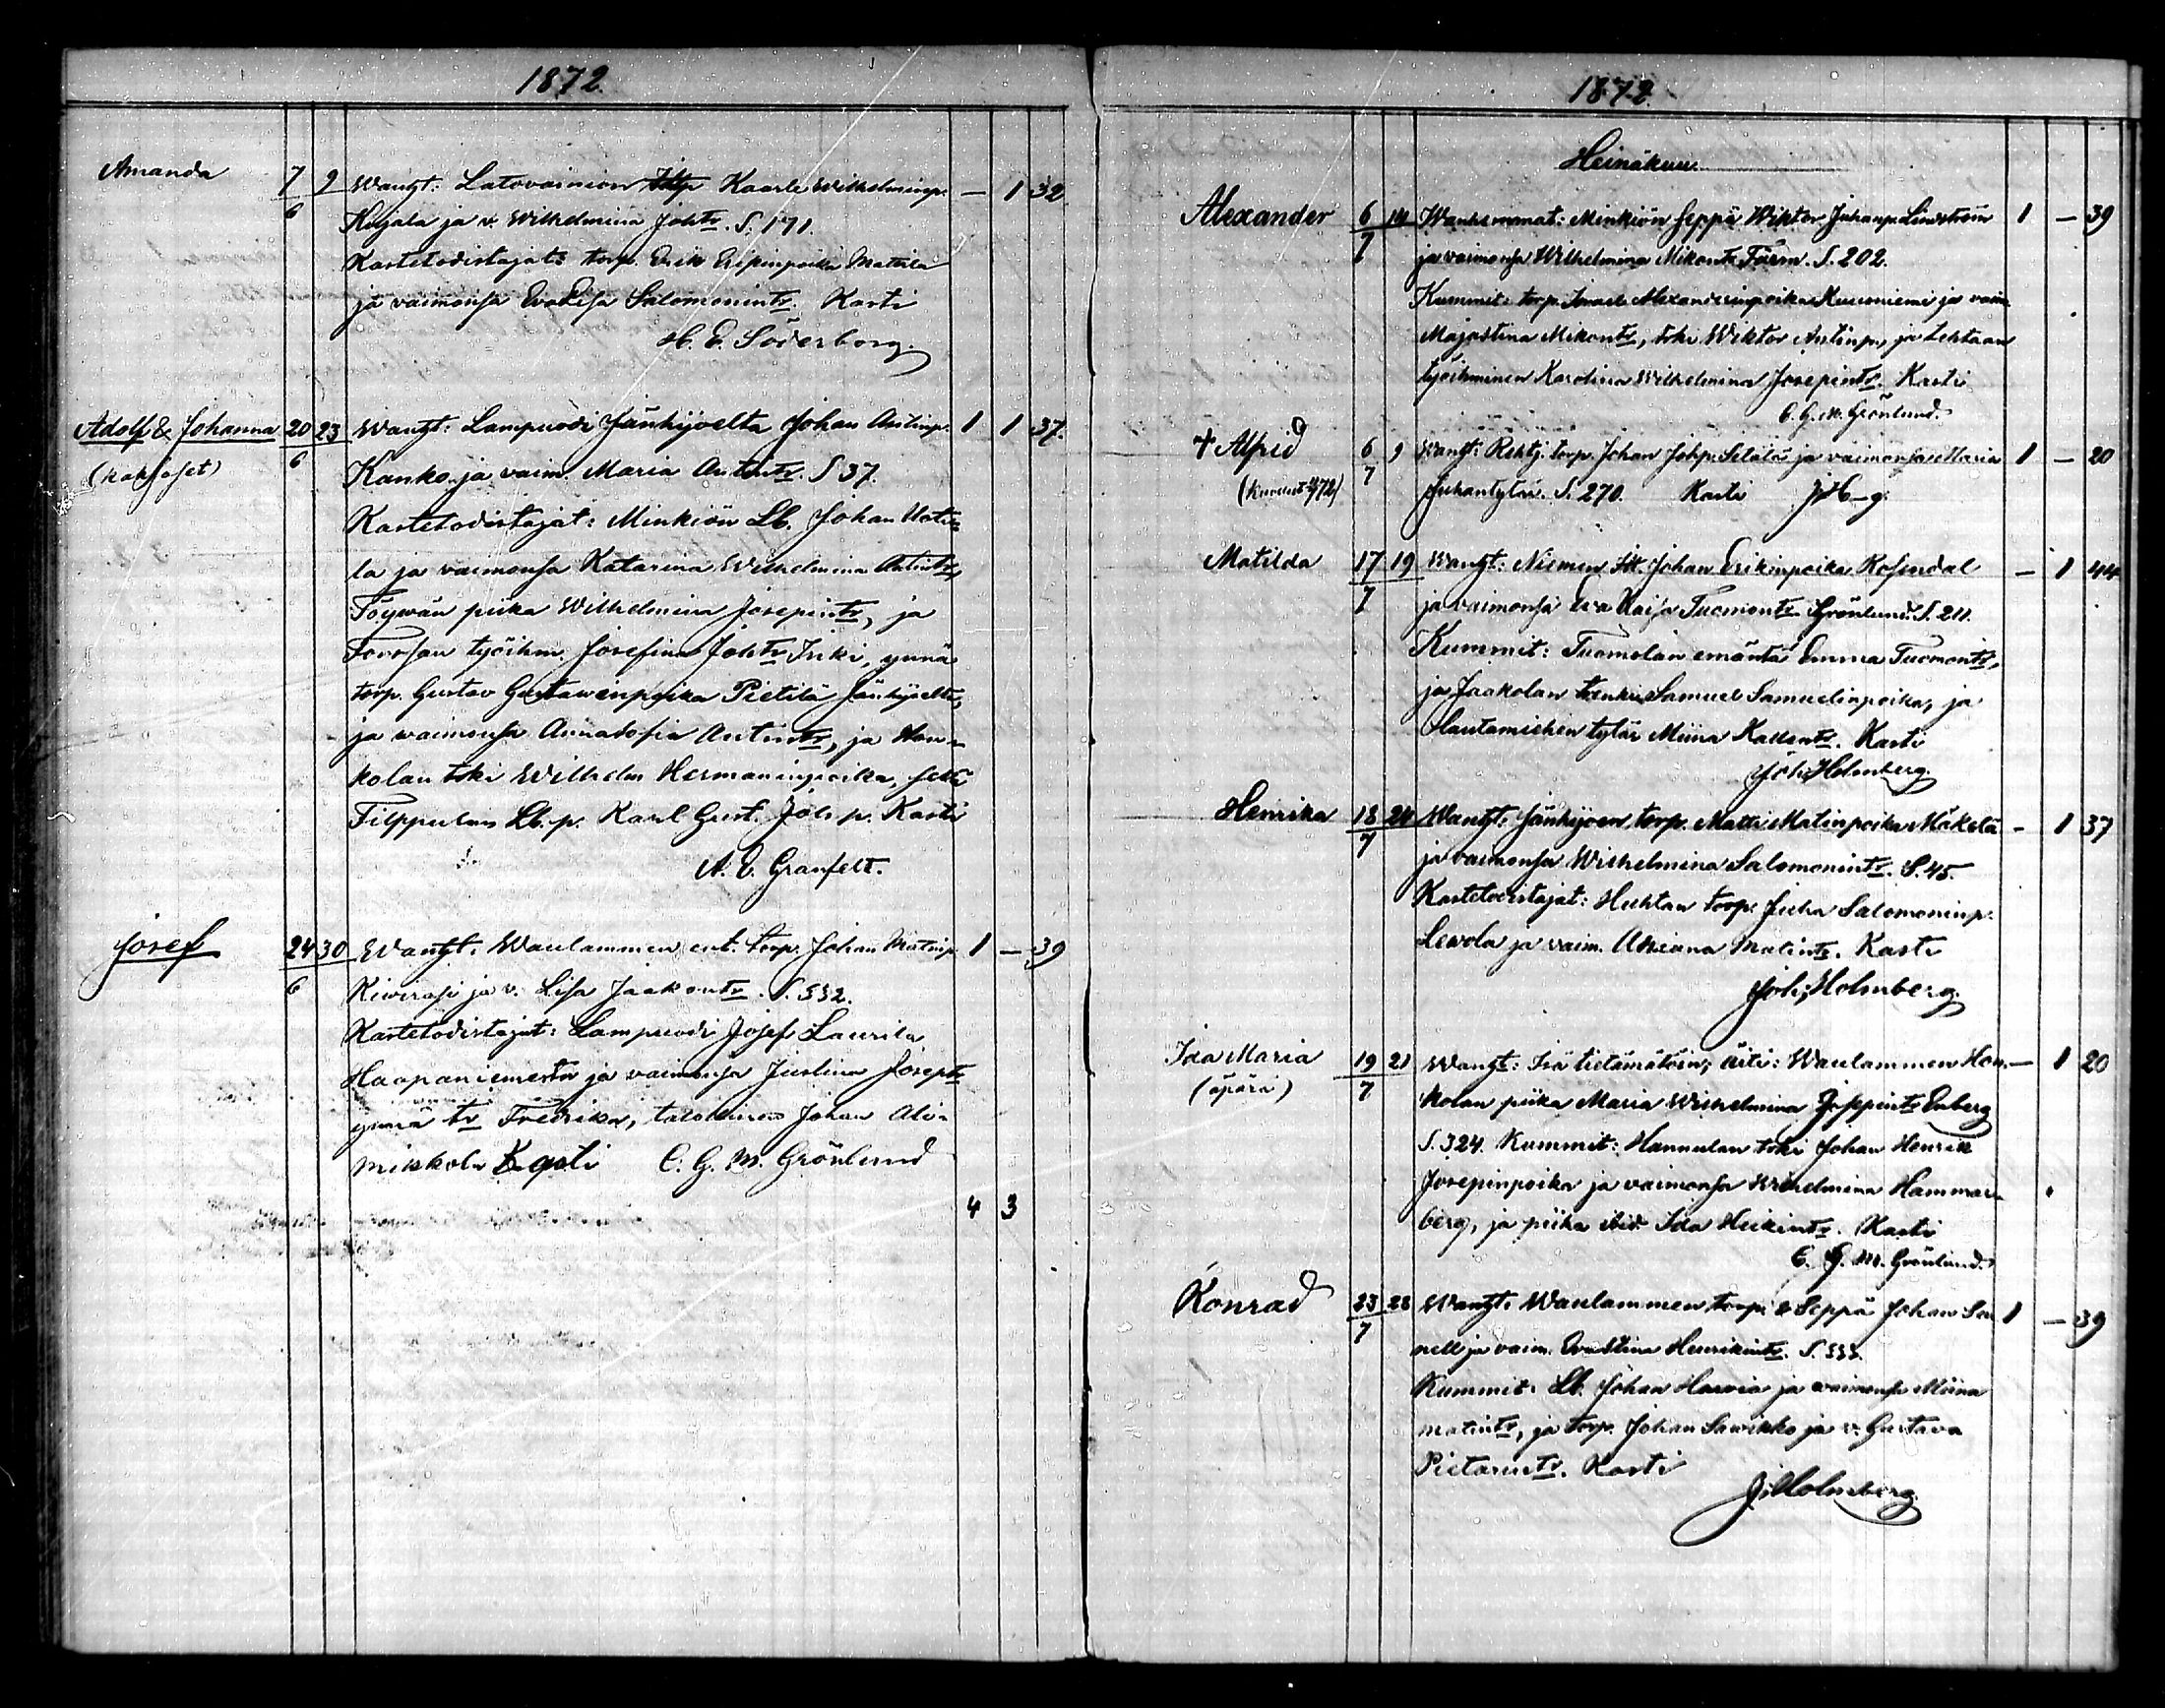 1872
Amanda 7/6 9 Wanht: Latovainion Kaarle Wilhelminp. — 1 32
Kujala ja v. Wilhelmina Johtr. S. 171.
Kastetodistajat: torp. Erik Erikinpoika Mattila
ja vaimonsa Eva Lisa Salomonintr. Kasti
H. E. Söderborg.
Adolf & Johanna 20/6 23 Wanht: Lampuodi Jänhijoelta Johan Antinp. 1 1 37.
(kaksoset) Kanko ja vaim. Maria Antintr. S 37.
Kastetodistajat: Minkiön Lb. Johan Uoti-
la ja vaimonsa Katarina Wilhelmina Antintr,
Töywän piika Wilhelmina Josepintr, ja
Forssan työihm. Josefina Johtr Inki, ynnä
torp. Gustav Gustawinpoika Pietilä Jänhijoelta,
ja waimonsa Annasofia Antintr, ja Hon-
kolan tki Wilhelm Hermaninpoika, sekä
Filppulan Lb. p. Karl Gust. Joh. p. Kasti
A. E. Granfelt.
Josef 24/6 30 Wanht: Waulammen ent. torp. Johan Matinp. 1 — 39
Kiwirasi ja v. Lisa Jaakontr. S. 332.
Kastetodistajat: Lampuodi Josef Laurila
Haapaniemestä ja vaimonsa Justina Joseptr
ynnä tr Fredrika, talollinen Johan Ali-
mikkola Kasti C. G. M. Grönlund
4 3
1872
Heinäkuu
Alexander 6/7 14 Wanhemmat: Minkiön Seppä Wiktor Juhanp. Lindström 1 — 39
ja vaimonsa Wilhelmina Mikontr Färm. S. 202.
Kummit: torp. Israel Alexanderinpoika Kusoniemi ja vaim.
Majastina Mikontr, tki Wiktor Antinp., ja Lehtaan
työihminen Karolina Wilhelmina Josepintr. Kasti
C. G. M. Grönlund.
+ Alfrid 6/7 9 Wanht: Rehtj. torp. Johan Johp. Seilälä ja vaimonsa Maria 1 — 20
Juhantytär. S. 270. Kasti JH—g.
Matilda 17/7 19 Wanht: Niemen Itk. Johan Erikinpoika Rosendal — 1 44
ja vaimonsa Eva Kaisa Tuomontr Grönlund. S. 211.
Kummit: Tuomolan emäntä Emma Tuomontr,
ja Jaakolan renki Samuel Samuelinpoika, ja
Hautamiehen tytär Miina Kallentr. Kasti
Joh: Holmberg.
Henrika 18/7 24 Wanht: Jänhijoen torp. Matti Matinpoika Mäkelä — 1 37
ja vaimonsa Wilhelmina Salomonintr. S. 45.
Kastetodistajat: Huhtan torp. Juha Salomoninp.
Lewola ja vaim. Amanda Matintr. Kasti
Joh: Holmberg.
Ida Maria 19/7 21 Wanht: Isä tietämätöin; äiti: Waulammen Hon- — 1 20
(äpärä) kolan piika Maria Wilhelmina Josepintr Enberg
S. 324. Kummit: Hannulan tki Johan Henrik
Josepinpoika ja vaimonsa Wilhelmina Hammar-
berg, ja piika Ida Heikintr. Kasti
C. G. M. Grönlund.
Konrad 23/7 28 Wanht: Waulammen torp. & Seppä Johan Sa- 1 — 39
nell ja vaim. Evastina Henrikintr. S. 333.
Kummit: Lb. Johan Harvia ja vaimonsa Miina
Matintr, ja torp. Johan Sawikko ja v. Gustava
Pietarintr. Kasti
J. Holmberg.